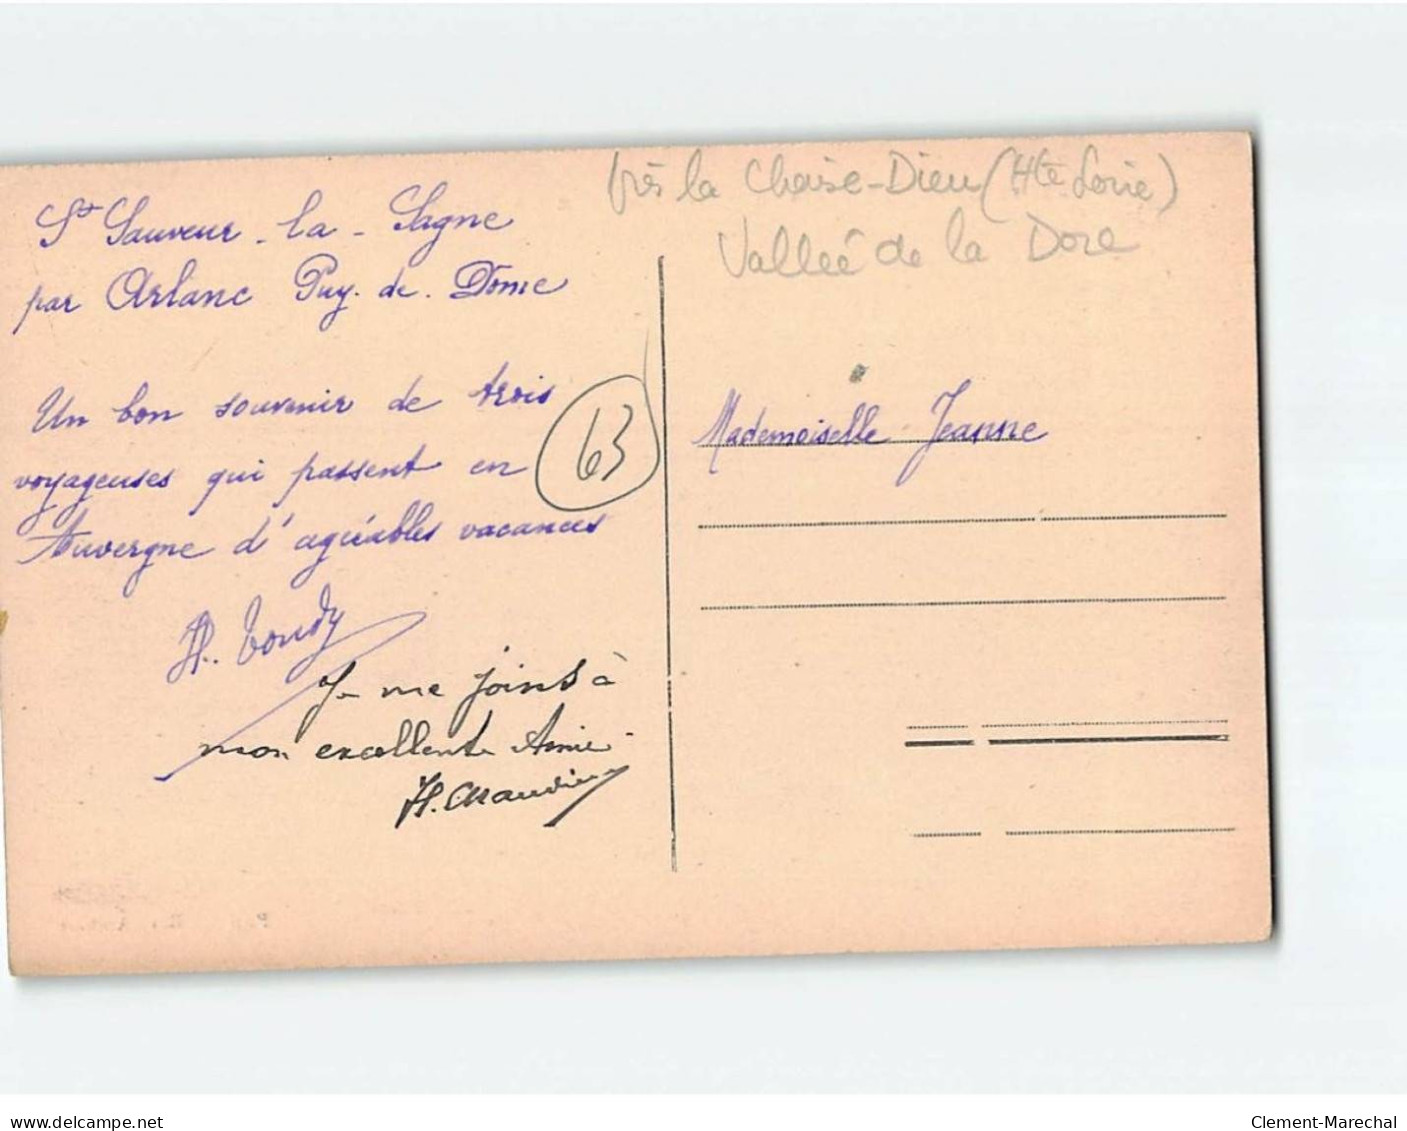 près la Chaise-Dieu (Hte Loire)
Vallée de la Dore
St Sauveur-la-Sagne
par Arlanc Puy-de-Dome
Un bon souvenir de trois
voyageuses qui passent en
Auvergne d'agréables vacances
63
Mademoiselle Jeanne
Je me joins à
mon excellente Amie
delcampe.net
Clement-Marechal